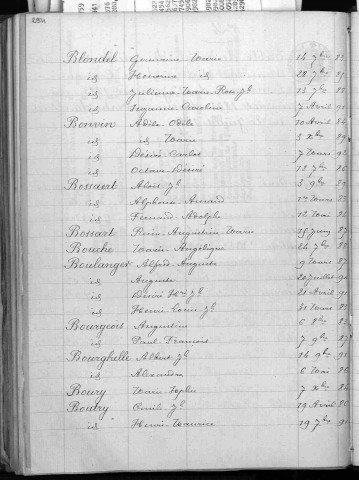 284
Blondel Germaine Marie 14 7bre
id Honorine id 28 7bre
id Julienne Marie Rose Jh 14 7bre 88
id Suzanne Caroline 7 Avril 91
Bonvin Adile Odile 10 Avril 84
id id Marie 3 Xbre 89
id Désiré Carlos 7 Mars 92
id Octave Désiré 12 7bre 86
Bossaert Aloïs Jh 3 9bre
id Alphonse Armand 1er Mars 82
id Fernand Adolphe 12 Mai
Bossart Irénée Augustin Marie 25 Juin 87
Bouche Marie Angélique 24 7bre 85
Boulanger Alfred Auguste 9 Mars 87
id Auguste 20 Juillet 90
id Désiré Hri Jh 21 Avril 90
id Henri Louis Jh 31 Mars 88
Bourgeois Augustin 6 8bre
id Paul François 7 9bre 87
Bourghelle Albert Jh 14 9bre 92
id Alexandre 6 Mai 86
Boury Marie Sophie 7 Xbre 84
Boutry Emile Jh 29 Avril 86
id Henri Maurice 19 7bre 90